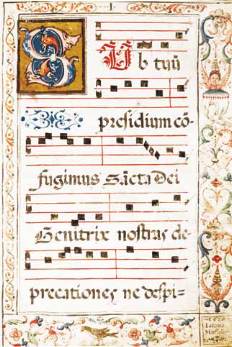 SUb tuũ
præsidium cõ-
fugimus Sãcta Dei
Genitrix nostras de-
precationes ne despi-